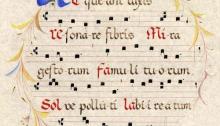 queant laxis
resonare fibris Mira
gestorum Famuli tuorum
Solve polluti labii reatum